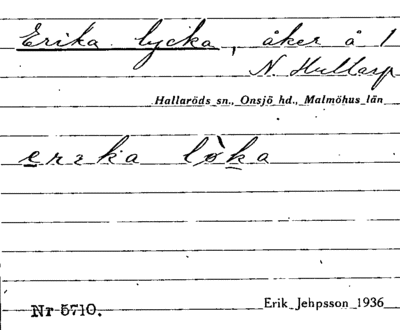 Erika lycka, åker å 1
N. Hultarp
Hallaröds sn., Onsjö hd., Malmöhus län
erika lòka
Nr 5710.
Erik Jehpsson 1936